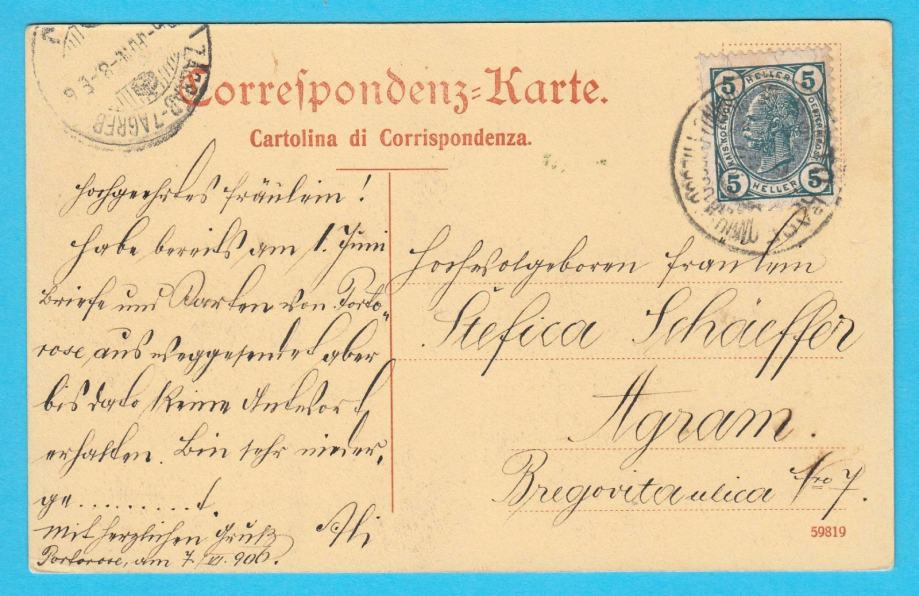 Correspondenz-Karte.
Cartolina di Corrispondenza.
ZAGRAB-ZAGREB
5 HELLER 5
5 HELLER 5
Hochgeehrtes Fräulein!
habe bereits am 1. Juni
Briefe und Karten von Porto-
rose aus weggesendet aber
bis dato keine Antwort
erhalten. Bin sehr nieder,
ge..........t.
mit herzlichen Gruß
Portorose, am 7./VI. 906.
Hochwolgeboren Fraulein
Stefica Schäeffer
Agram.
Bregovita ulica Nro 7.
59819